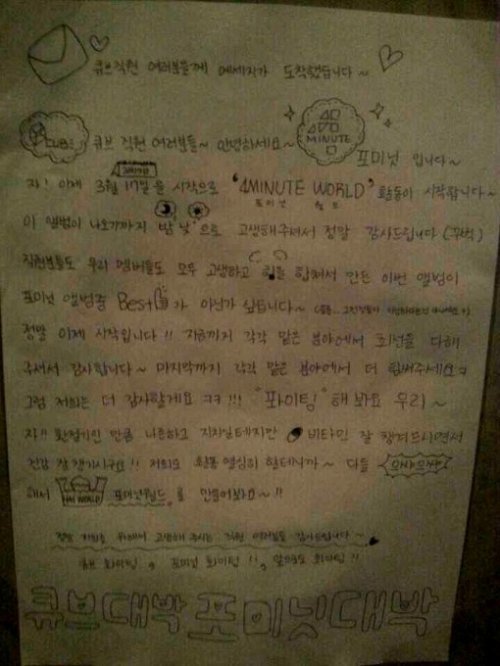 큐브직원 여러분들께 메세지가 도착했습니다~
CUBE 큐브 직원 여러분들~ 안녕하세요~ 4MINUTE 포미닛 입니다~
자! 이제 3월 17일을 시작으로 '4MINUTE WORLD' 활동이 시작됩니다~
포미닛 월드
이 앨범이 나오기까지 밤 낮으로 고생해주셔서 정말 감사드립니다 (꾸벅)
직원분들도 우리 멤버들도 모두 고생하고 힘을 합쳐서 만든 이번 앨범이
포미닛 앨범중 Best가 아닌가 싶습니다~
정말 이제 시작입니다!! 지금까지 각각 맡은 분야에서 최선을 다해
주셔서 감사합니다~ 마지막까지 각각 맡은 분야에서 더 힘써주세요ㅋ
그럼 저희는 더 감사할게요 ㅋㅋ!!! "퐈이팅" 해 봐요 우리~
자!! 환절기인 만큼 나른하고 지치실테지만 비타민 잘 챙겨드시면서
건강 잘 챙기시구요!! 저희도 활동 열심히 할테니까~ 다들 으쌰으쌰
해서 WORLD 포미닛월드를 만들어봐요~!!
저희를 위해서 고생해 주시는 직원 여러분들 감사드립니다~
큐브 화이팅, 포미닛 화이팅!!, 앞으로도 화이팅!!
큐브대박 포미닛대박